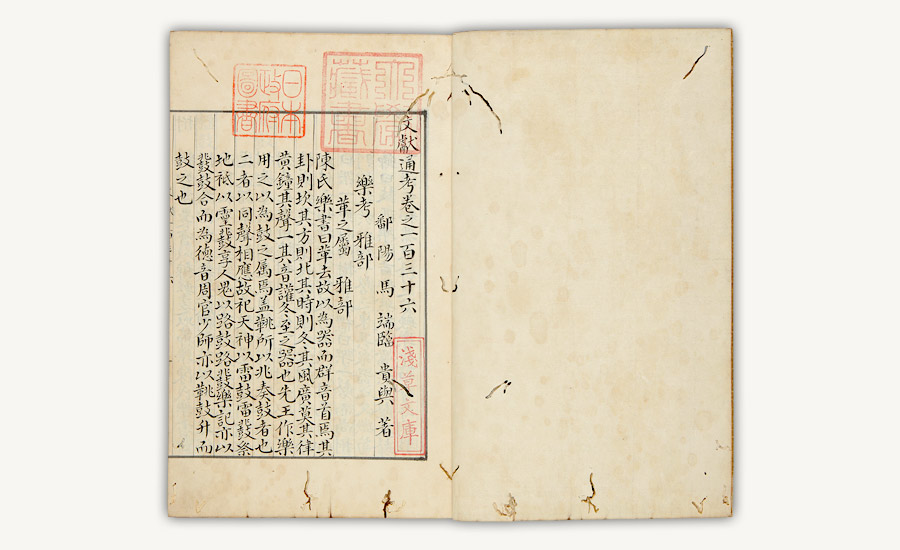 大學藏書
日本政府圖書
淺草文庫
文獻通考卷之一百三十六
鄱陽馬 端臨 貴與 著
樂考 雅部
革之屬 雅部
陳氏樂書曰革去故以為器而群音首焉其
卦則坎其方則北其時則冬其風廣莫其律
黃鐘其聲一其音讙冬至之器也先王作樂
用之以為鼓之属焉盖鞉所以兆奏鼓者也
二者以同聲相應故祀天神以雷鼓雷鼗祭
地祗以靈鼗享人鬼以路鼓路鼗樂記亦以
鼗鼓合而為德音周官少師亦以鞉鼓升而
鼓之也